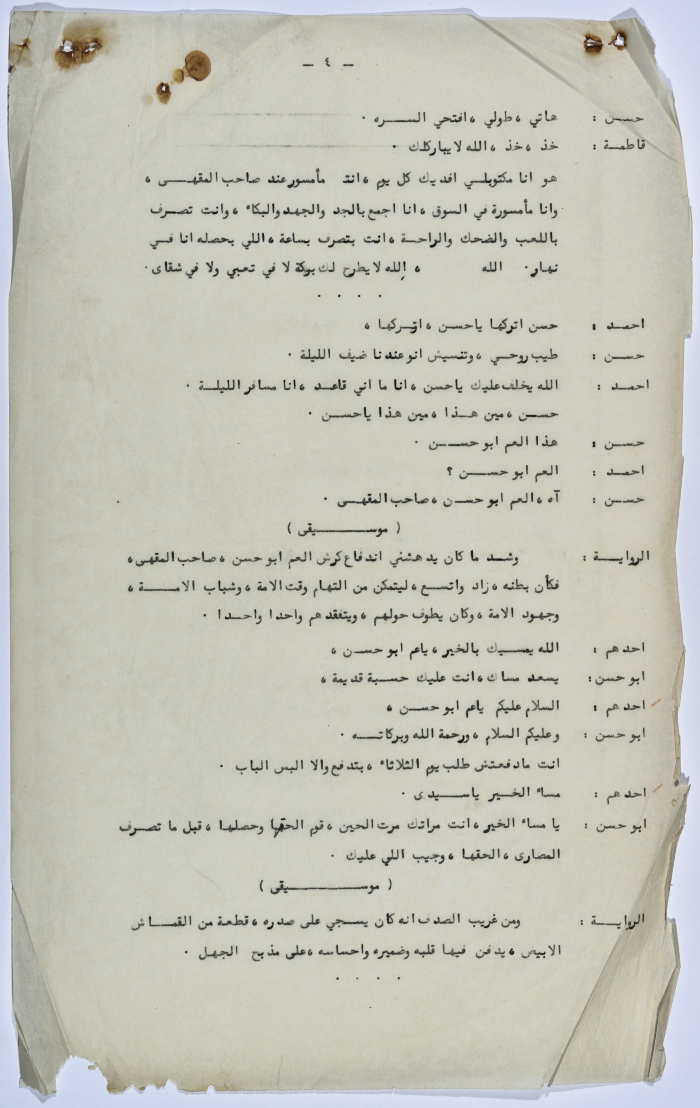 - ٤ -
حسـن : هاتي ، طولي ، افتحي الســره .
فاطمـة : خذ ، خذ ، الله لا يباركلك .
هو انا مكتوبلـي افديك كل يوم ، انت مأمسور عند صاحب المقهـى ،
وانا مأمسورة في السوق ، انا اجمع بالجد والجهد والبكاء ، وانت تصـرف
باللعب والضحك والراحـة ، انت بتصرف بساعة ، اللي بحصله انا فـي
نهار . الله ، الله لا يطرح لك بركة لا في تعبي ولا في شقاى .
. . . .
احمـد : حسن اتركها ياحسن ، اتـركها ،
حسـن : طيب روحـي ، وتنسيش انو عندنا ضيف الليلة .
احمـد : الله يخلف عليك ياحسن ، انا ما اني قاعـد ، انا مسافر الليلـة .
حسـن ، مين هـذا ، مين هذا ياحسـن .
حسـن : هذا العم ابو حســن .
احمـد : العم ابو حســن ؟
حسـن : آه ، العم ابو حسـن ، صاحب المقهـى .
( موســـيقى )
الروايـــة : وشـد ما كان يدهشني اندفاع كرش العم ابو حسن ، صاحب المقهى ،
فكأن بطنه ، زاد واتسـع ، ليتمكن من التهام وقت الامة ، وشباب الامــة ،
وجهود الامة ، وكان يطوف حولهم ، ويتفقدهم واحدا واحـدا .
احدهم : الله يمسـيك بالخير ، ياعم ابو حسـن ،
ابو حسن : يسعد مساك ، انت عليك حسـبة قديمة ،
احدهم : السلام عليكم ياعم ابو حسـن ،
ابو حسن : وعليكم السلام ، ورحمة الله وبركاتــه .
انت مادفعتش طلب يوم الثلاثاء ، بتدفع والا البس الباب .
احدهم : مساء الخـير ياسـيدى .
ابو حسن : يا مساء الخير ، انت مراتك مرت الحين ، قوم الحقها وحصلها ، قبل ما تصـرف
المصارى ، الحقها ، وجيب اللي عليك .
( موســـيقى )
الروايـــة : ومن غريب الصدف انه كان يسجي على صدره ، قطعة من القمـاش
الابيض ، يدفـن فيها قلبه وضميره واحساسه ، على مذبح الجهـل .
. . . .